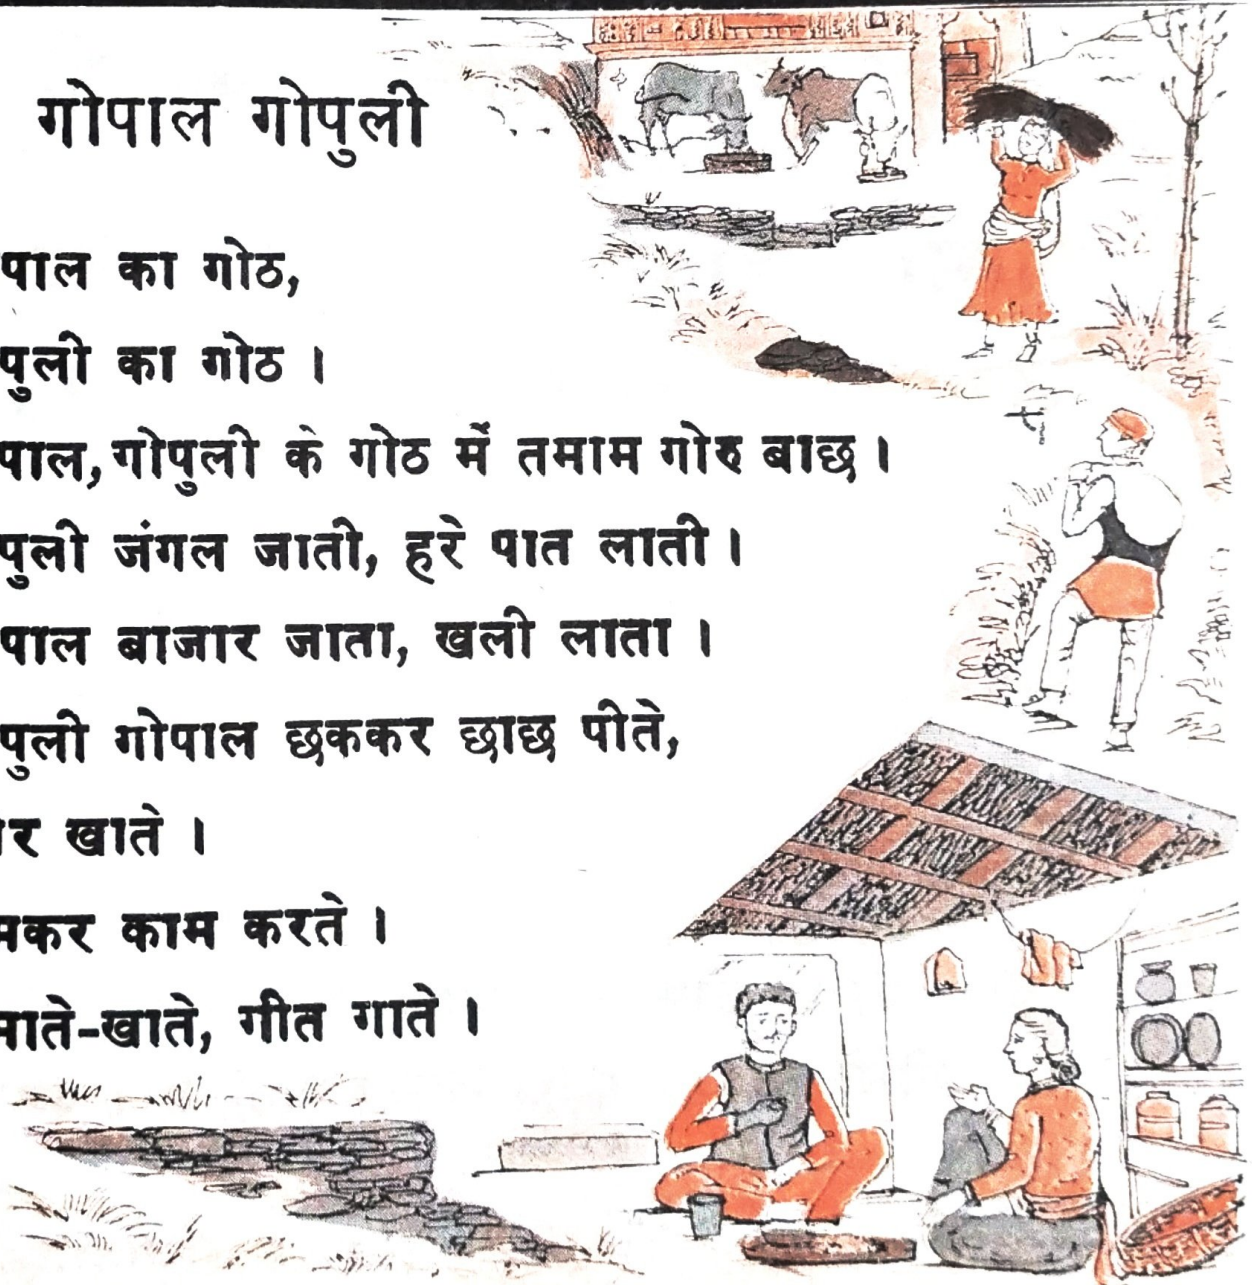 गोपाल गोपुली
पाल का गोठ,
पुली का गोठ ।
पाल, गोपुली के गोठ में तमाम गोरु बाछ ।
पुली जंगल जाती, हरे पात लाती ।
पाल बाजार जाता, खली लाता ।
पुली गोपाल छककर छाछ पीते,
खाते ।
मकर काम करते ।
खाते, गीत गाते ।